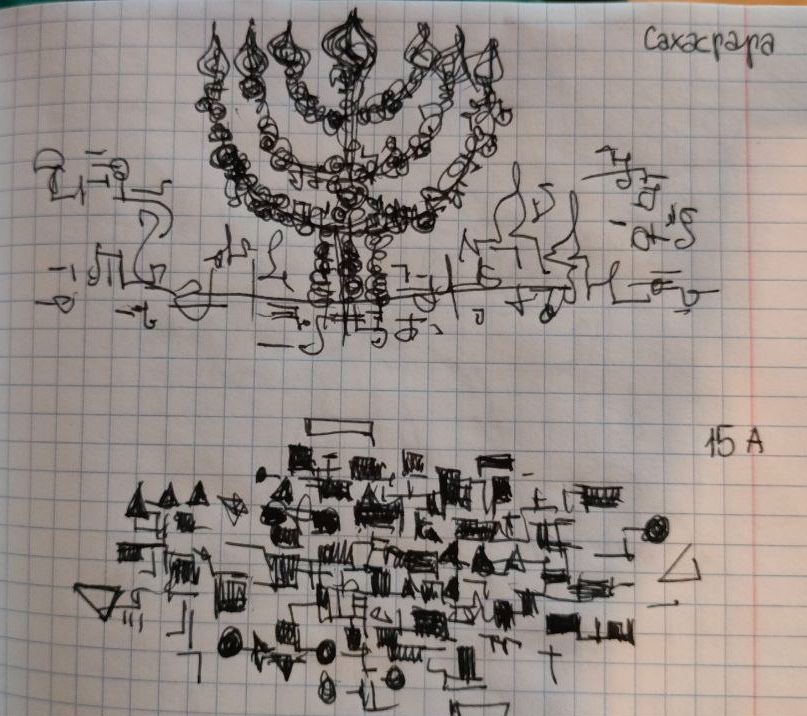 Сахасрара
15 А